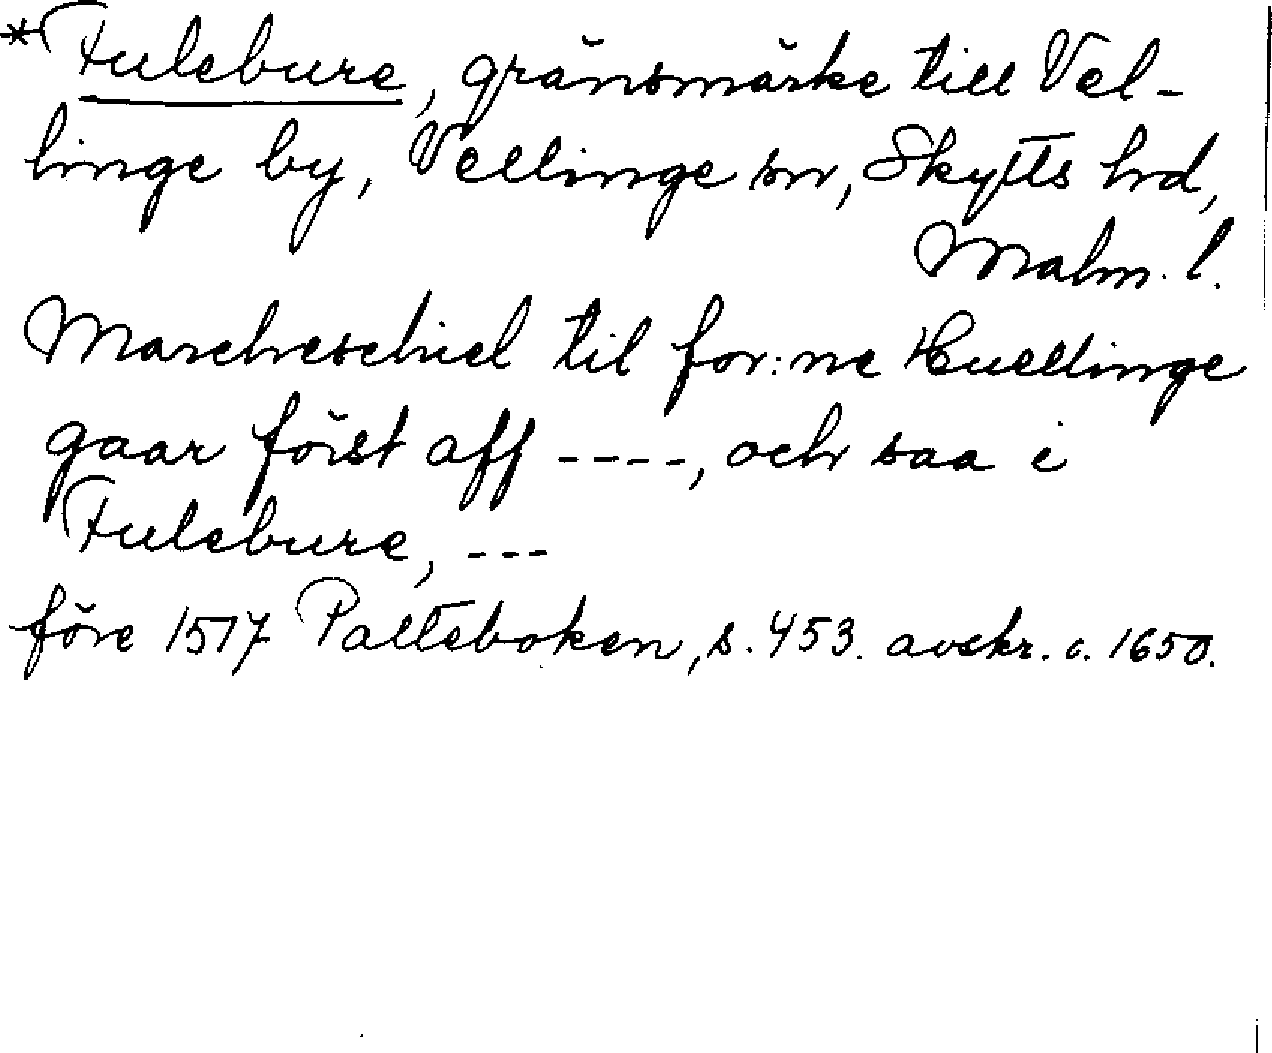 *Fulebure, gränsmärke till Vel-
linge by, Vellinge sn, Skytts hd,
Malm. l.
Marcheschiel til for:ne Huellinge
gaar först aff ----, och saa i
Fulebure, ---
före 1517 Palteboken, s. 453. avskr. c. 1650.